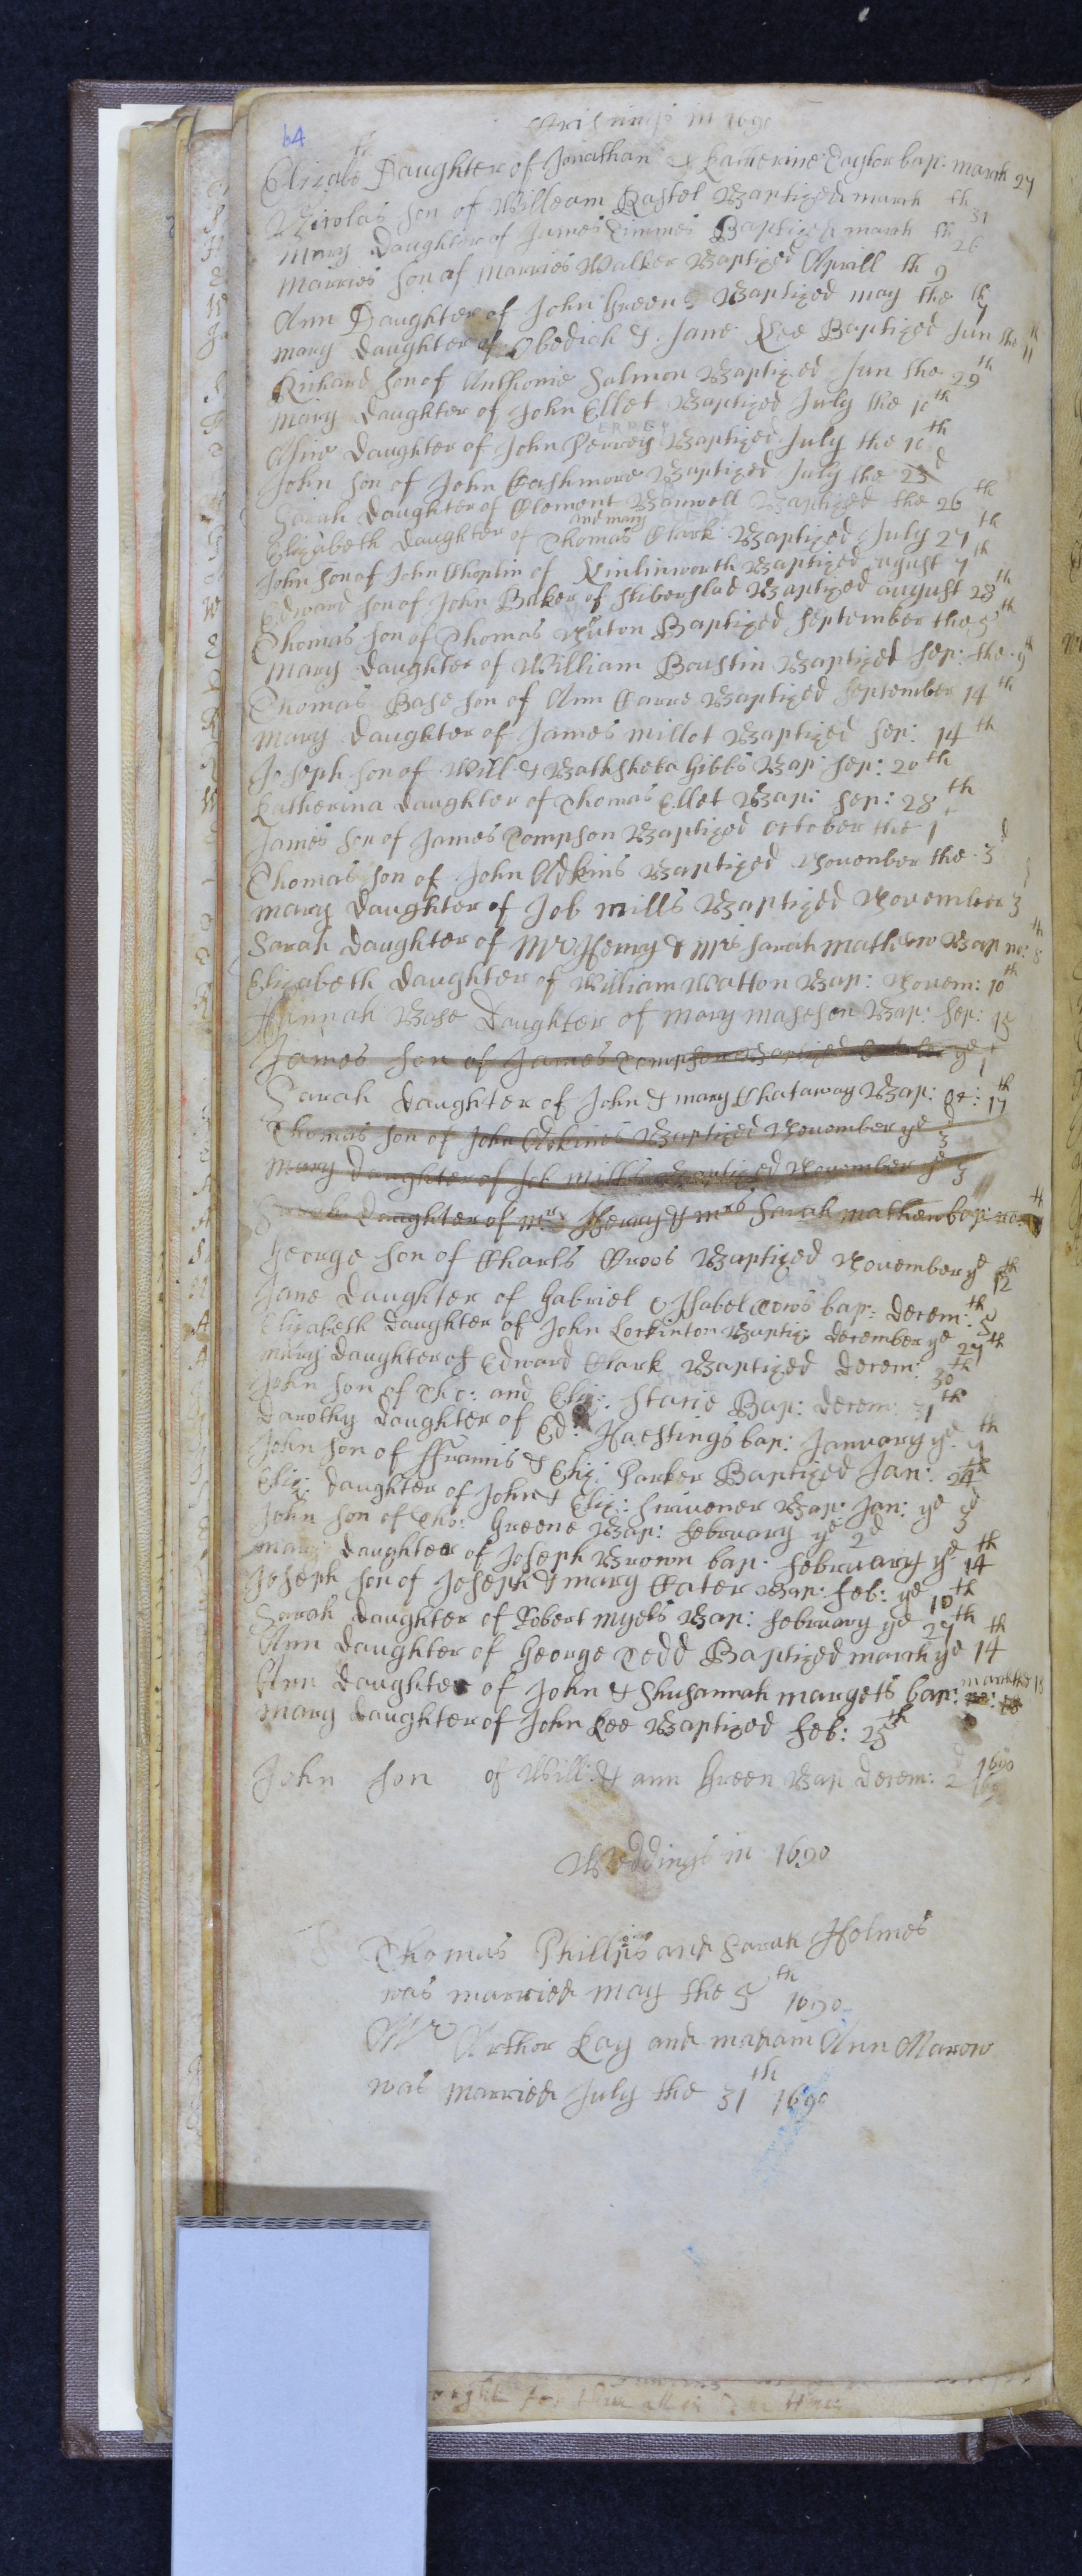 64
in 1690
Elizabeth Daughter of Jonathan & Katherine Taylor bap: march 27
Nicolas son of Willeam Rastel Baptized march 31th
Mary Daughter of James Timmes Baptized march th 26
Marries son of Marries Walker Baptized Aprill th 9
Ann Daughter of John Green Baptized may the th 7
Mary Daughter of Obedieh & Jane Lee Baptized Jun the 11th
Richard son of Anthonie Salmon Baptized Jun the 29th
Mary Daughter of John Ellet Baptized July the 10th
Daughter of John Perrey Baptized July the 10th
John son of John Cashmore Baptized July the 23d
Sarah Daughter of Clement Banwell Baptized the 26th
Elizabeth Daughter of Thomas and mary Clark Baptized July 27th
John son of John Choplin of Baptized August 7th
Edward son of John Baker of Baptized august 28th
Thomas son of Thomas Nuton Baptized September the 5th
Mary Daughter of William Boustin Baptized Sep: the 9th
Thomas Base son of Ann Carre Baptized September 14th
Mary Daughter of James millet Baptized Sep: 14th
Joseph son of Will & Bathsheba Gibbs Bap: Sep: 20th
Katherina Daughter of Thomas Ellet Bap: Sep: 28th
James son of James Tompson Baptized October the 1
Thomas son of John Adkins Baptized November the 3d
Mary Daughter of Job mills Baptized November 3
Sarah Daughter of Mr Henry & Mrs Sarah Mathew Bap no: 8th
Elizabeth Daughter of William Watton Bap: Novem: 10th
Hannah Base Daughter of Mary Bap: Sep: 15
James son of James Tompson Baptized October ye 1
Sarah Daughter of John & mary Chataway Bap: oc: 17th
Thomas son of John Adkines Baptized November ye 3d
Mary Daughter of Job Mills Baptized November ye 3d
Sarah Daughter of Mr Henry & Mrs Sarah mathew bap: no:
George son of Charls Croos Baptized November ye 12th
Jane Daughter of Gabriel & Isabel Cows bap: Decem: 5th
Elizabeth Daughter of John Lockinton Baptiz: December ye 27th
Mary Daughter of Edward Clark Baptized Decem: 30th
John son of Tho: and Eliz: Starie Bap: Decem: 31th
Darothy Daughter of Ed: Haestings bap: January ye th
John son of Francis & Eliz: Parker Baptized Jan: 24th
Eliz: Daughter of John & Eliz: Scrivener Bap: Jan: ye 3d
John son of Tho: Greene Bap: February ye 2d
Mary Daughter of Joseph Brown bap: February ye 14th
Joseph son of Joseph & mary Cater Bap: Feb: ye 10th
Sarah Daughter of Robert Myels Bap: February ye 27th
Ann Daughter of George Tedd Baptized march ye 14th
Ann Daughter of John & Shusannah margets bap: march the 18
Mary Daughter of John Lee Baptized Feb: 25th
John son of Will: & ann Green Bap Decem: 2d 1690
Weddings in 1690
Thomas Phillips and Sarah Holmes
was married may the 5th 1690
Mr Arthor Kay and madam Ann Marow
was married July the 31th 1690